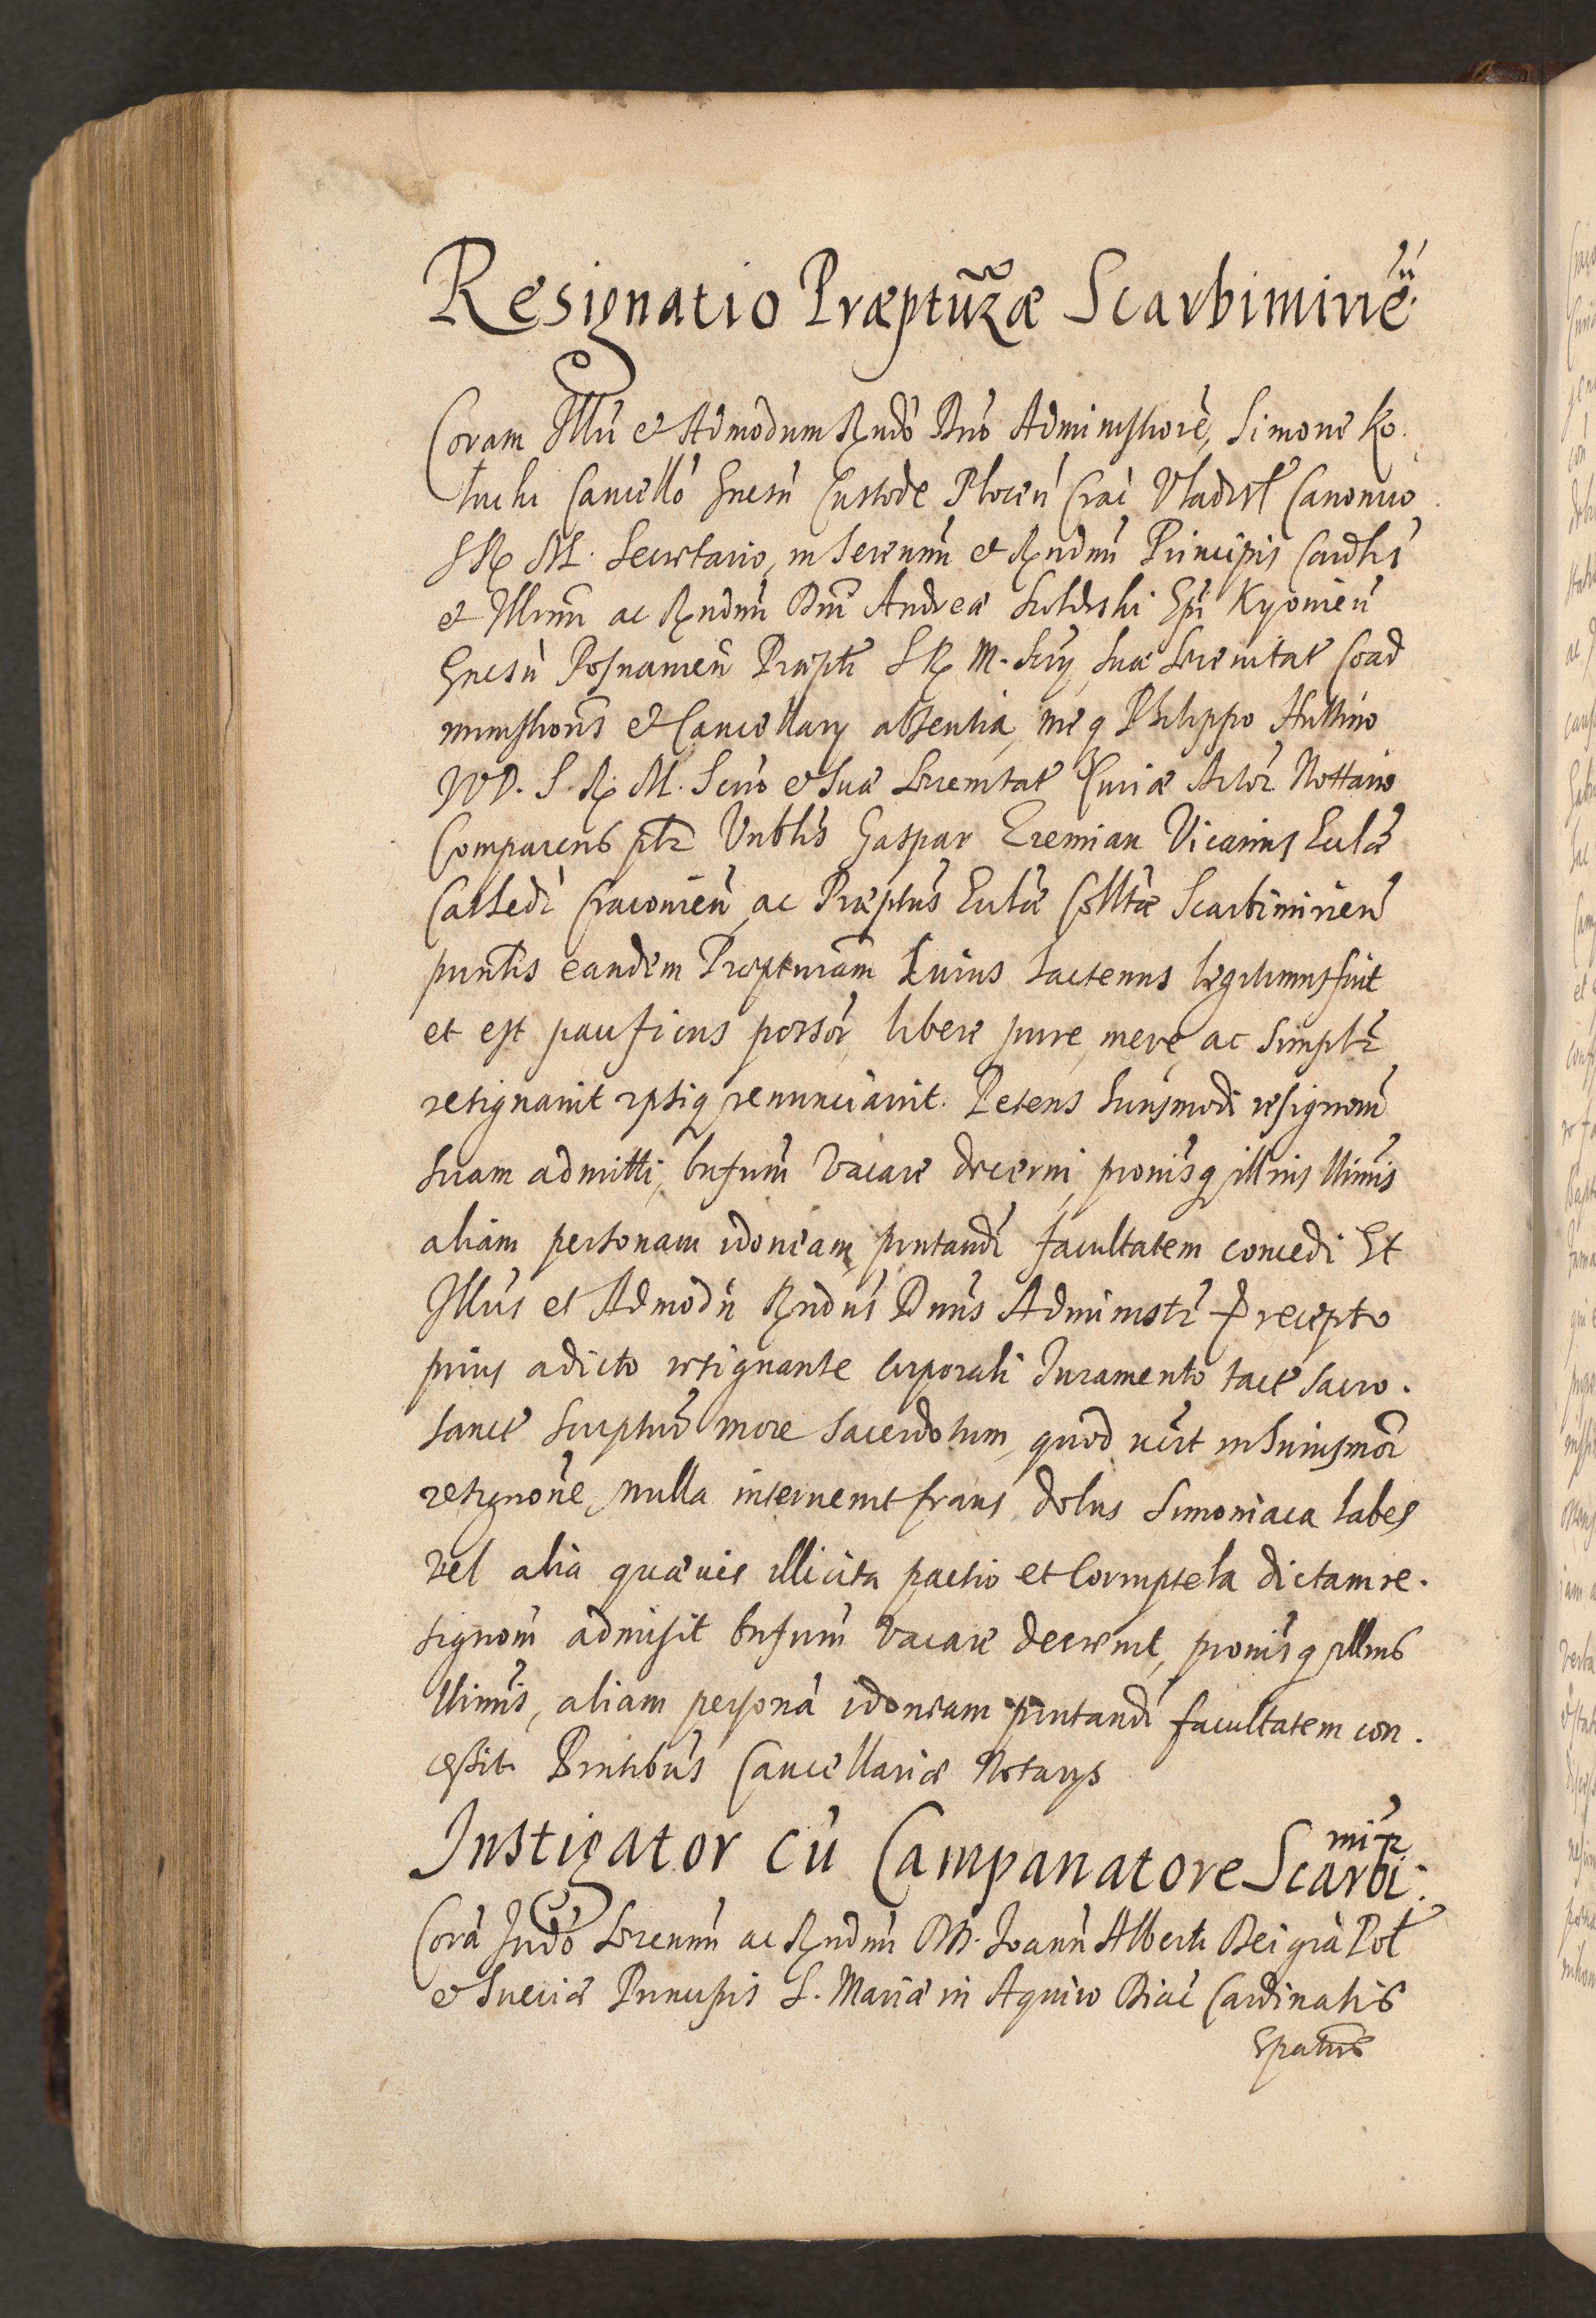 Resignatio Præpturæ Scarbimirien̄
Coram Illri et Admodum Rndo Dno Administrore, Simone Ko
łucki Cancello Gnesn Custode Plocen Crac Vladisl Canonico
S R M. Secretario, in Serenmi et Rndmi Principis Cardlis
et Illrmi ac Rndmi Dni Andreæ Szołdrski Epi Kyovien
Gnesn Posnanien Præpti S R M. Scrij, suæ Serenitat Coad
ministroris et Cancellarij absentia, meq Philippo Huttino
JVD. S. R. M. Scrio et suæ Serenitat Curiæ Actor Nottario
Comparens plr Vnblis Gaspar Eremian Vicarius Ecclæ
Cathedr Cracovien, ac Præptus Ecclæ Colltæ Scarbimirien
pnntis eandem Præpturam Cuius hactenus legitimus fuit
et est pacificus possor, libere pure, mere, ac simplr
resignavit ipsiq renunciavit. Petens huiusmodi resignom
suam admitti, bnfium vacare decerni, provisq illius Ulimis
aliam personam idoneam pntandi facultatem concedi Et
Illris et Admodu Rndus Dnus Administr recepto
prius a dicto resignante Corporali Juramento tact sacro.
sanct scriptur more sacerdotum, quod vert in huiusmoi
resignone, nulla intervenit fraus dolus Simoniaca labes
vel alia quævis illicita pactio et Corruptela dictam re.
signom admisit bnfium vacare decrevit, provisq illius
Ulimis, aliam persona idoneam pntandi facultatem con.
cessit. Pntibus Cancellariæ Notarijs
Instigator cu Campanatore Scarbi.
mir
Cora Judo Serenmi ac Rndmi DD. Joann Alberti Dei gra Pol
et Sueciæ Principis S. Mariæ in Aquiro Diac Cardinalis
Epatus